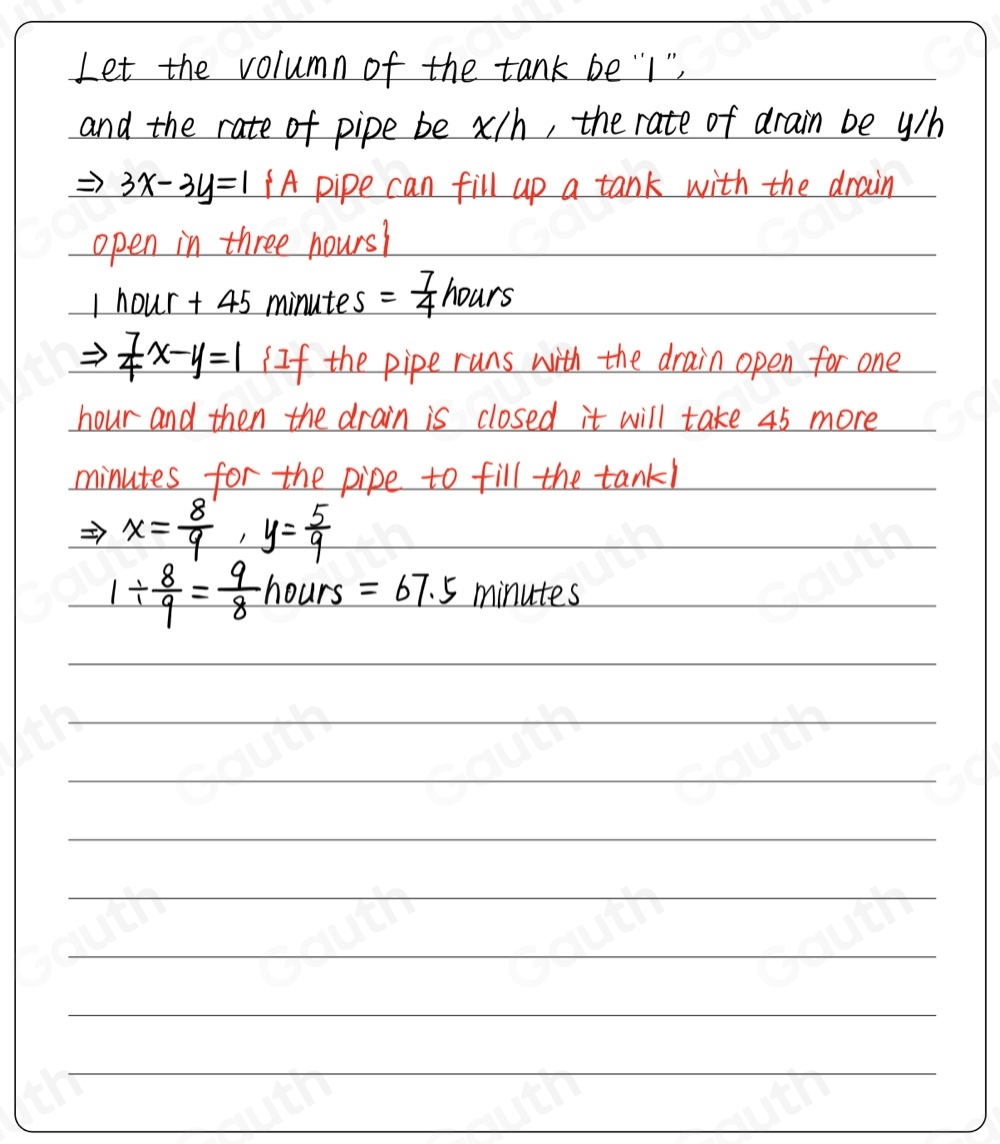 Let the volumn of the tank be "1",
and the rate of pipe be x/h, the rate of drain be y/h
⇒ 3x-3y=1 {A pipe can fill up a tank with the drain
open in three hours}
1 hour + 45 minutes = 7/4 hours
⇒ 7/4 x-y=1 {If the pipe runs with the drain open for one
hour and then the drain is closed it will take 45 more
minutes for the pipe to fill the tank}
⇒ x=8/9, y=5/9
1÷8/9=9/8 hours = 67.5 minutes